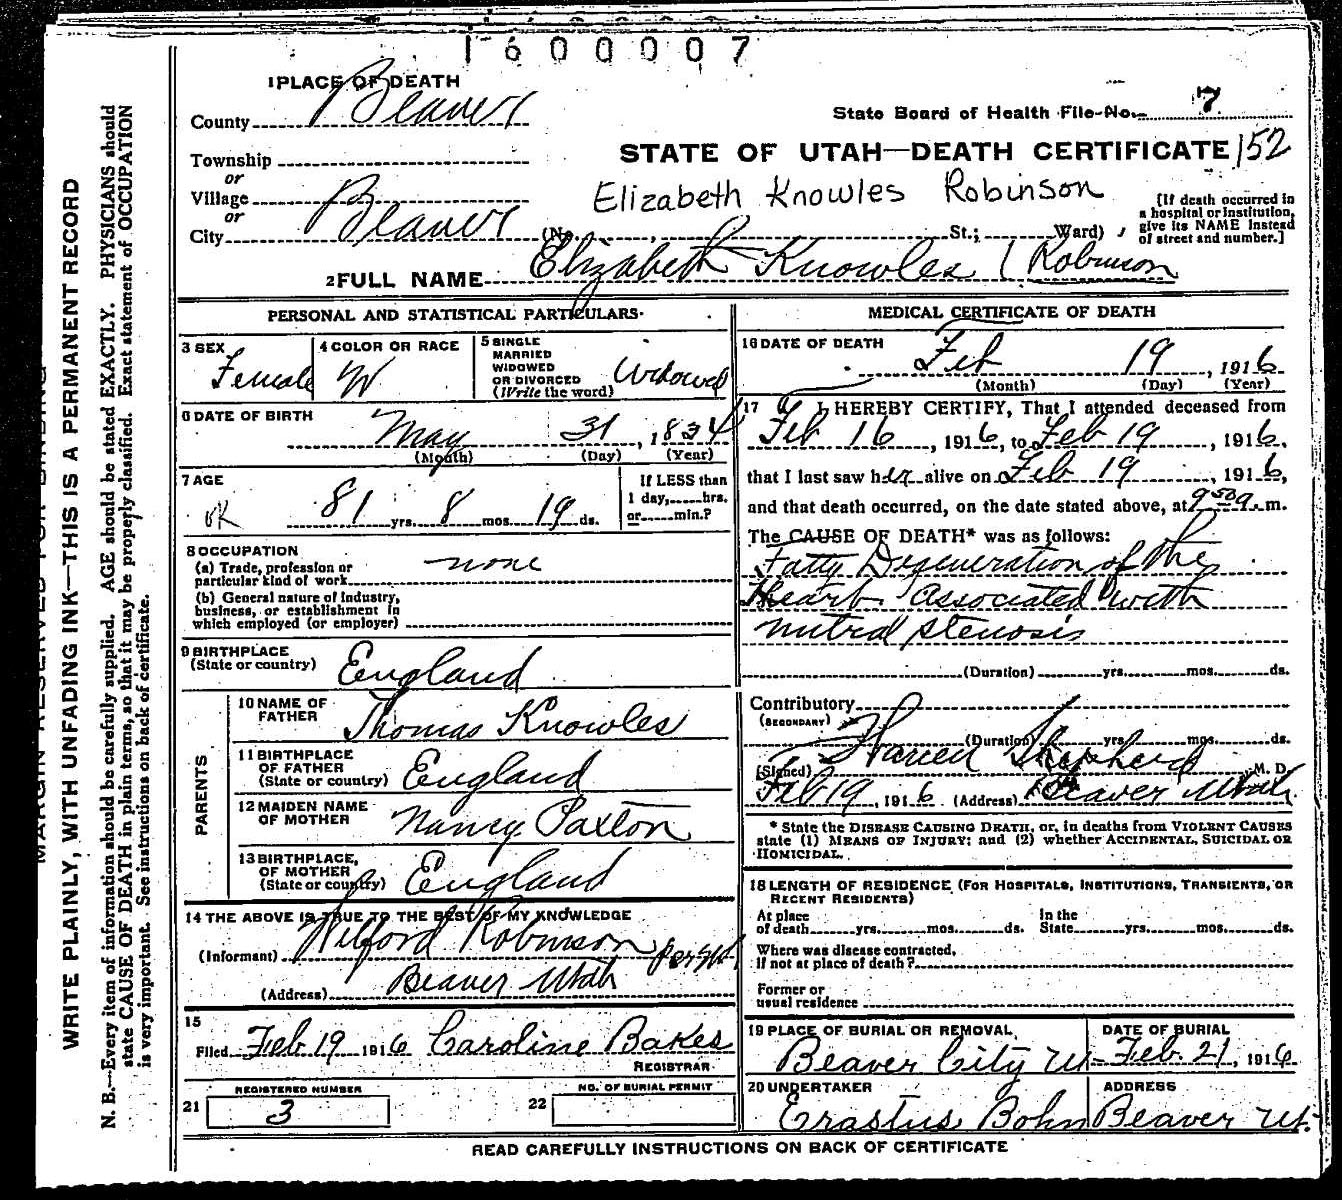 1600007
1 PLACE OF DEATH
County Beaver
Township
or
Village
or
City Beaver (No. St.; Ward)
State Board of Health File No. 7
STATE OF UTAH—DEATH CERTIFICATE 152
Elizabeth Knowles Robinson
[If death occurred in
a hospital or institution,
give its NAME instead
of street and number.]
2 FULL NAME Elizabeth Knowles Robinson
PERSONAL AND STATISTICAL PARTICULARS.
3 SEX Female
4 COLOR OR RACE W
5 SINGLE
MARRIED
WIDOWED
OR DIVORCED
(Write the word) Widowed
6 DATE OF BIRTH
May 31, 1834
(Month) (Day) (Year)
7 AGE
OK 81 yrs. 8 mos. 19 ds.
If LESS than
1 day, hrs.
or min.?
8 OCCUPATION
(a) Trade, profession or
particular kind of work none
(b) General nature of industry,
business, or establishment in
which employed (or employer)
9 BIRTHPLACE
(State or country) England
PARENTS
10 NAME OF
FATHER Thomas Knowles
11 BIRTHPLACE
OF FATHER
(State or country) England
12 MAIDEN NAME
OF MOTHER Nancy Paxton
13 BIRTHPLACE,
OF MOTHER
(State or country) England
14 THE ABOVE IS TRUE TO THE BEST OF MY KNOWLEDGE
(Informant) Wilford Robinson
(Address) Beaver Utah
15
Filed Feb 19 1916 Caroline Bakes
REGISTRAR.
REGISTERED NUMBER
21 3
NO. OF BURIAL PERMIT
22
MEDICAL CERTIFICATE OF DEATH
16 DATE OF DEATH
Feb 19, 1916
(Month) (Day) (Year)
17 I HEREBY CERTIFY, That I attended deceased from
Feb 16, 1916, to Feb 19, 1916,
that I last saw her alive on Feb 19, 1916,
and that death occurred, on the date stated above, at 9 50 a. m.
The CAUSE OF DEATH* was as follows:
Fatty Degeneration of the
Heart Associated with
mitral stenosis
(Duration) yrs. mos. ds.
Contributory
(SECONDARY)
(Duration) yrs. mos. ds.
(Signed) Warren Shepherd M. D.
Feb 19, 1916 (Address) Beaver Utah
* State the DISEASE CAUSING DEATH, or, in deaths from VIOLENT CAUSES
state (1) MEANS OF INJURY; and (2) whether ACCIDENTAL, SUICIDAL OR
HOMICIDAL.
18 LENGTH OF RESIDENCE (FOR HOSPITALS, INSTITUTIONS, TRANSIENTS, OR
RECENT RESIDENTS)
At place
of death yrs. mos. ds.
In the
State yrs. mos. ds.
Where was disease contracted,
if not at place of death?
Former or
usual residence
19 PLACE OF BURIAL OR REMOVAL
Beaver City U
DATE OF BURIAL
Feb. 21, 1916
20 UNDERTAKER
Erastus Bohn
ADDRESS
Beaver Ut.
READ CAREFULLY INSTRUCTIONS ON BACK OF CERTIFICATE
MARGIN RESERVED FOR BINDING
WRITE PLAINLY, WITH UNFADING INK—THIS IS A PERMANENT RECORD
N. B.—Every item of information should be carefully supplied. AGE should be stated EXACTLY. PHYSICIANS should
state CAUSE OF DEATH in plain terms, so that it may be properly classified. Exact statement of OCCUPATION
is very important. See instructions on back of certificate.